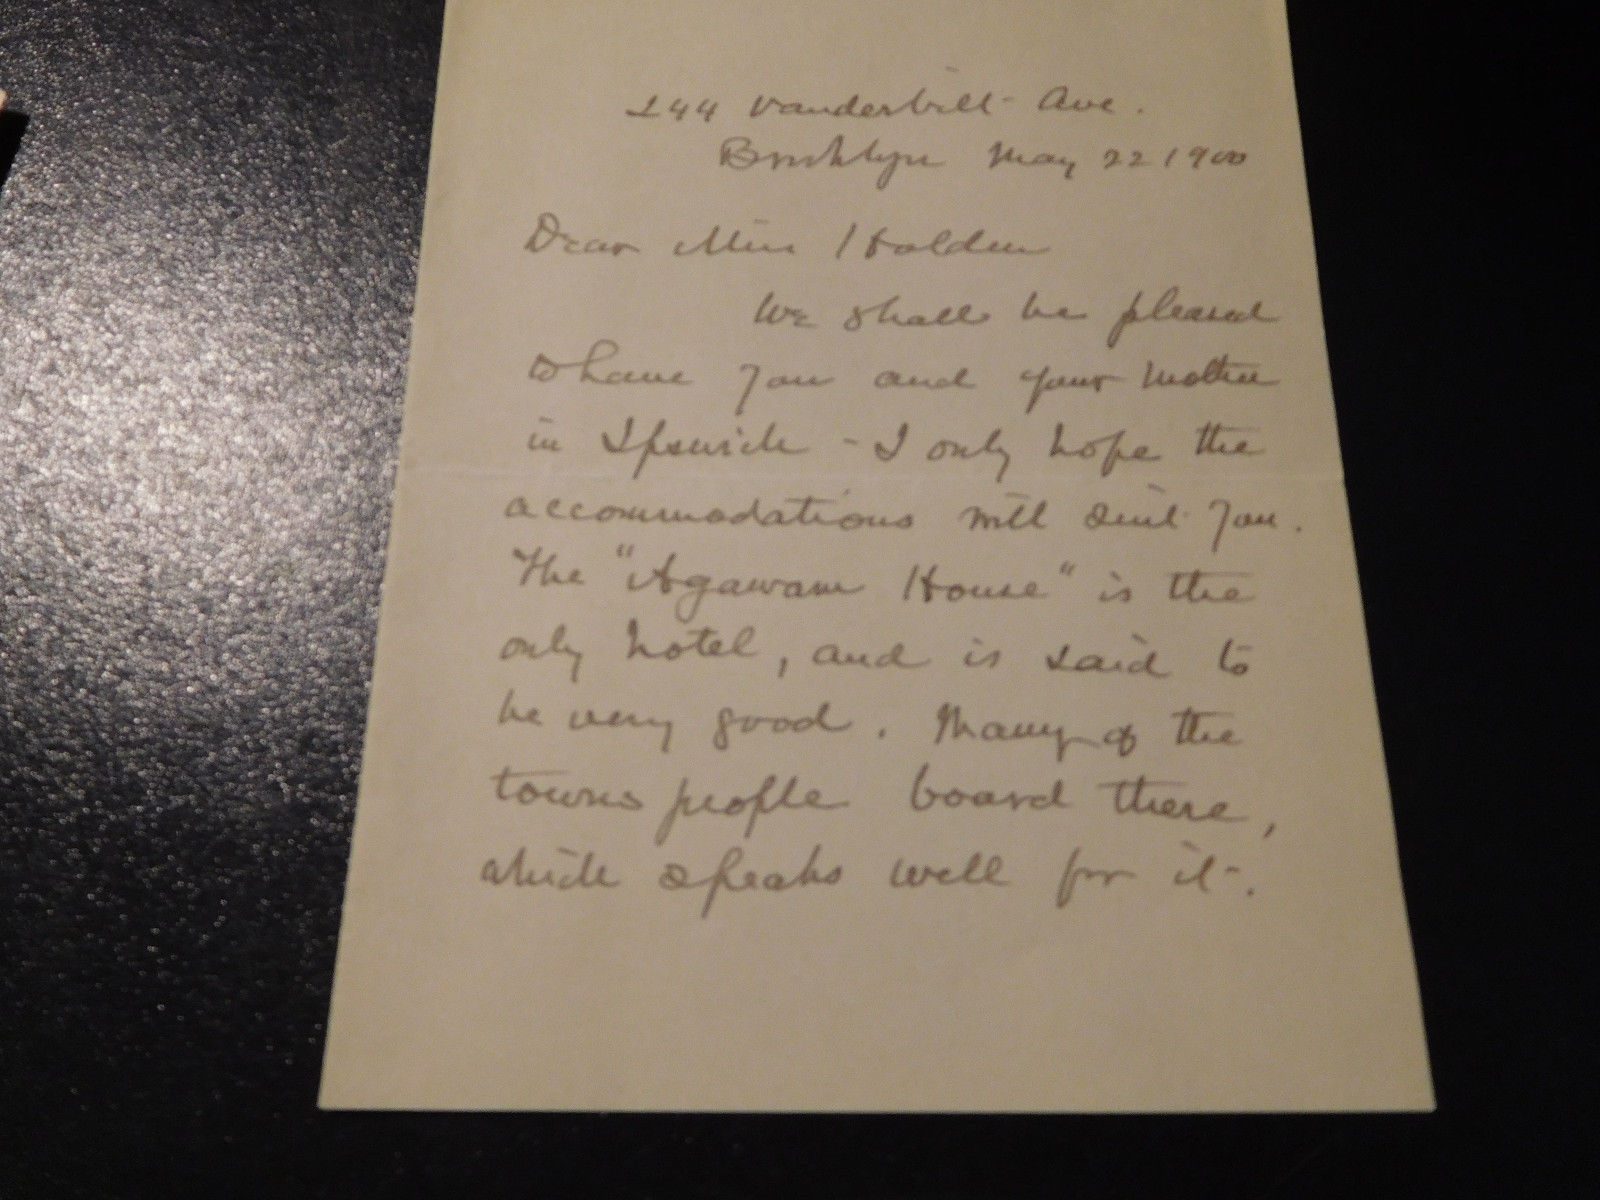 244 Vanderbilt Ave.
Brooklyn May 22 1900
Dear Miss Holden
We shall be pleased
to have you and your mother
in Ipswich - I only hope the
accommodations will suit you.
The "Agawam House" is the
only hotel, and is said to
be very good. Many of the
towns people board there,
which speaks well for it.